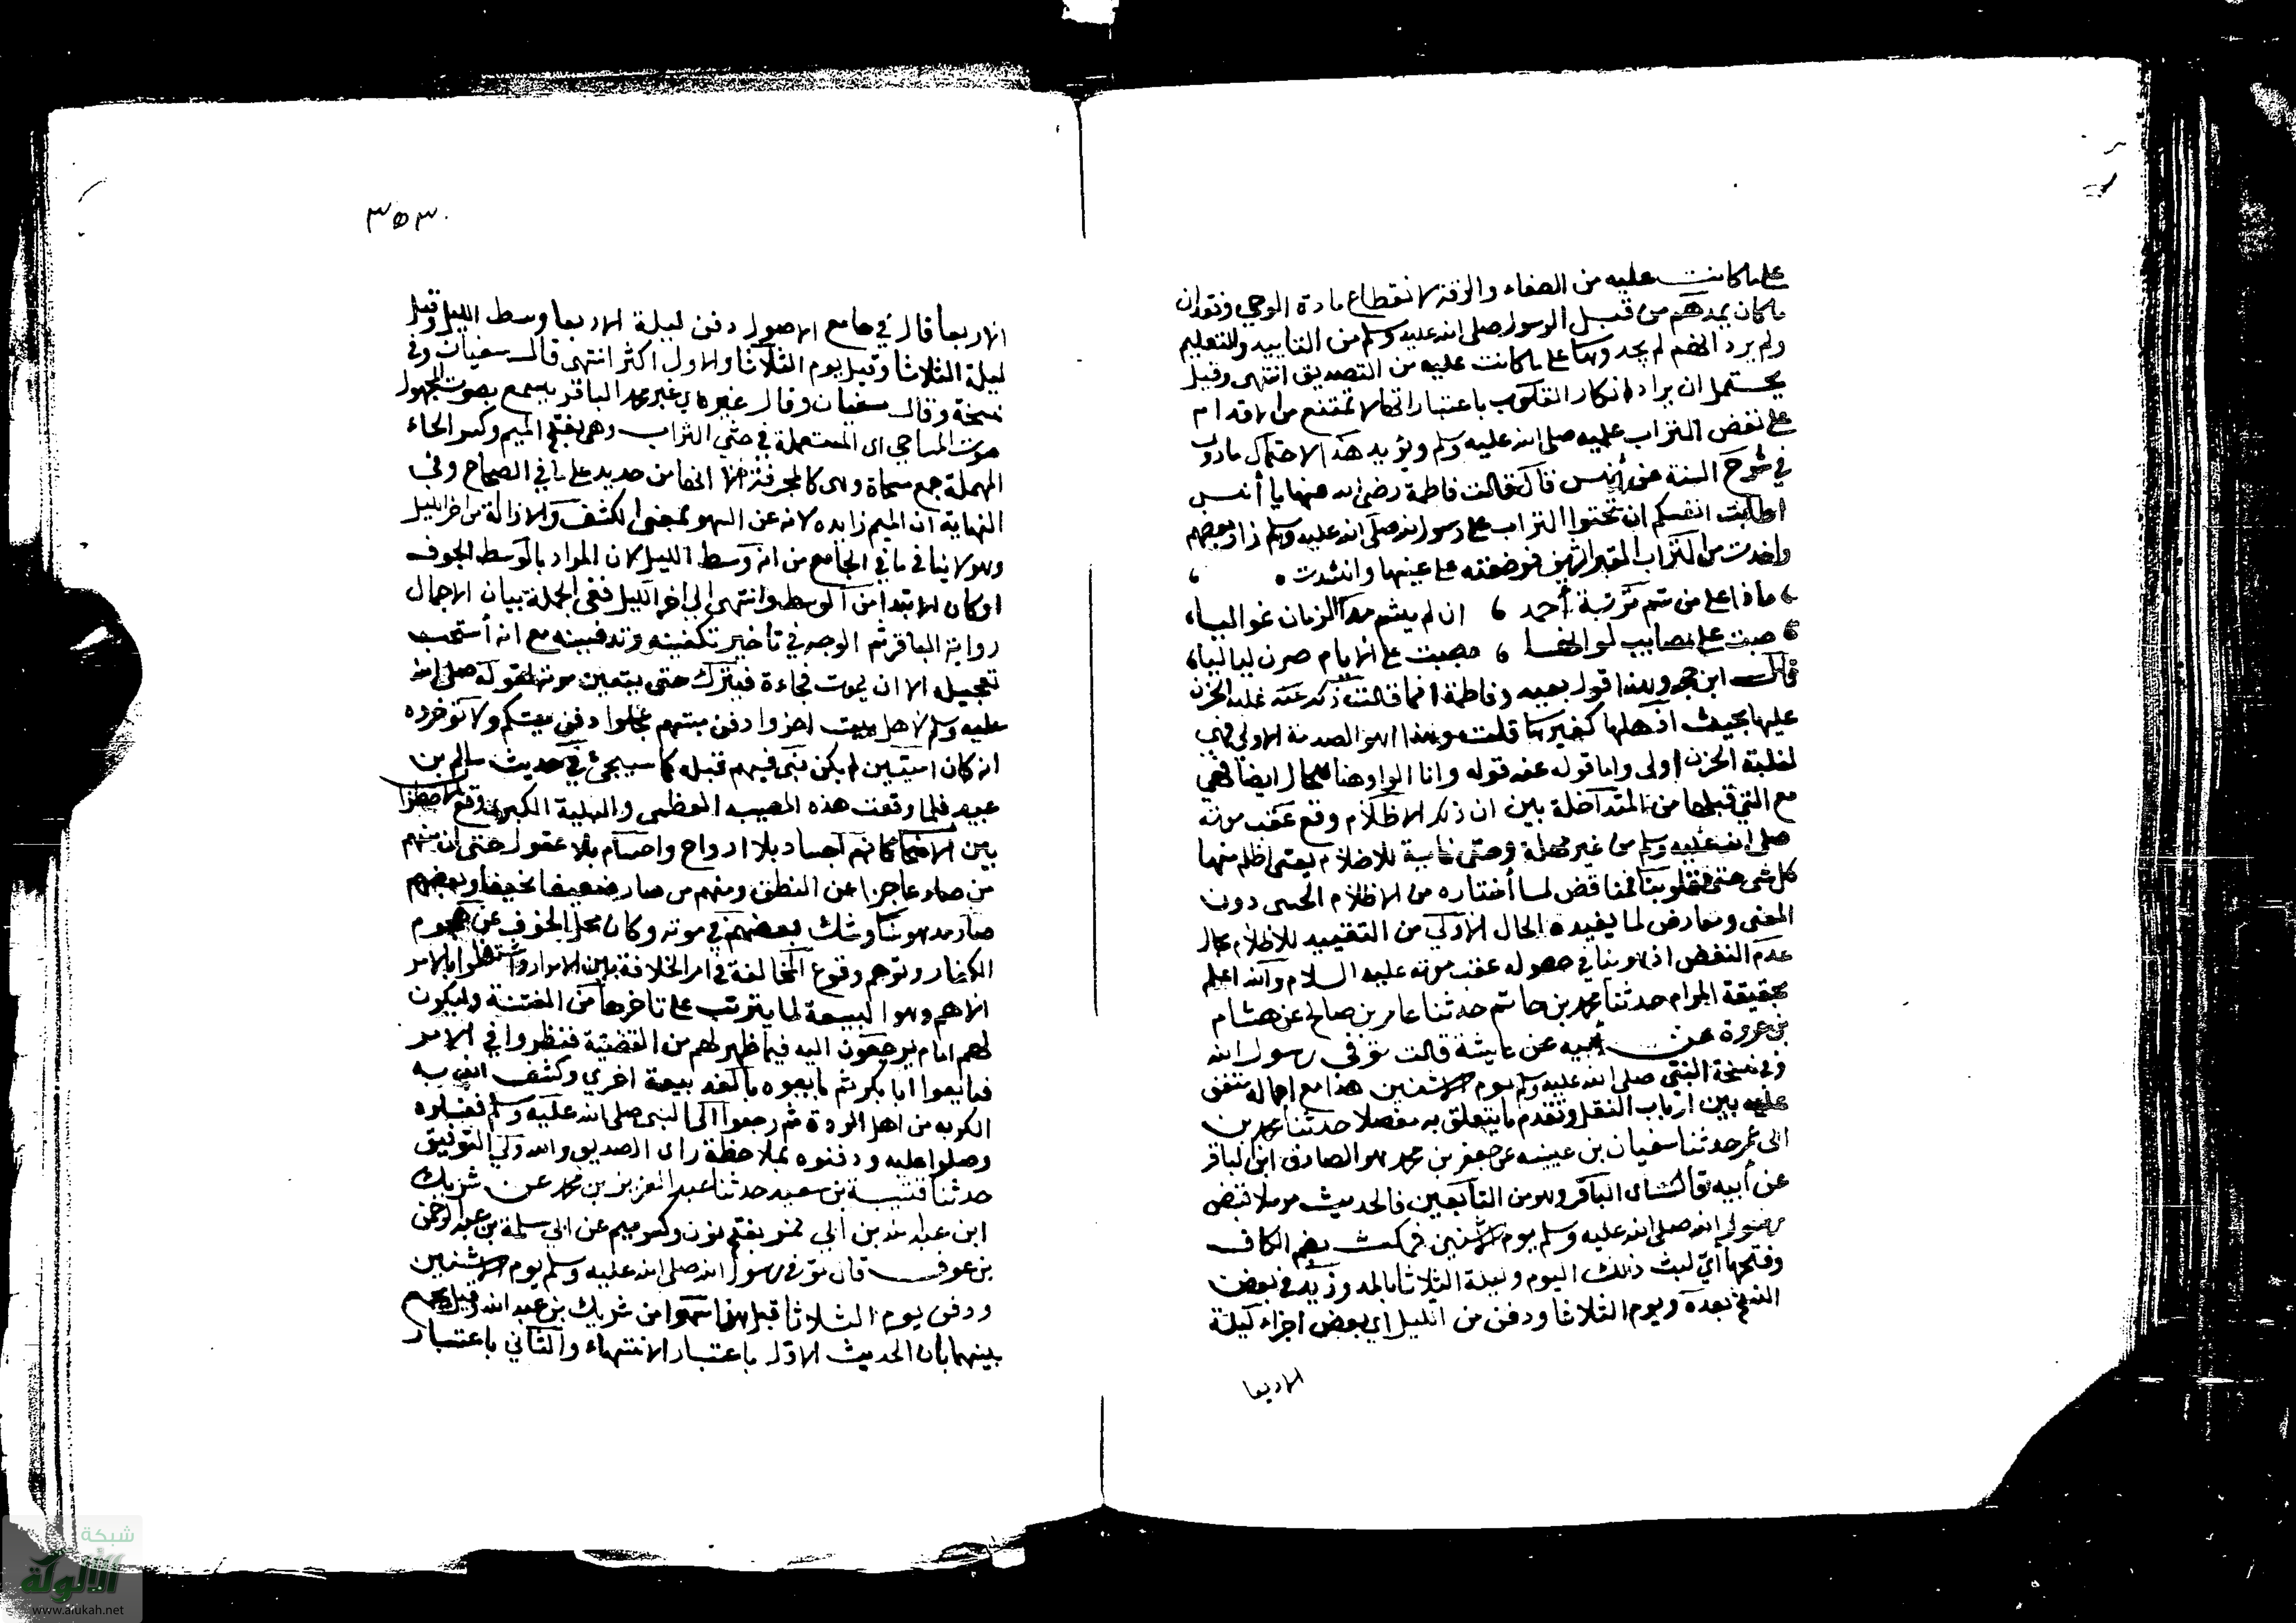 على ما كانت عليه من الصفاء والرقة لانقطاع مادة الوحي وفقدان
ما كان يمدهم من قبل الرسول صلى الله عليه وسلم من التاييد والتعليم
ولم يرد انهم لم يجدوها على ما كانت عليه من التصديق انتهى وقيل
يحتمل ان يراد انكار القلوب باعتبار انها لا تمتنع من الاقدام
على نفض التراب عليه صلى الله عليه وسلم ويؤيد هذا الاحتمال ما روى
في شرح السنة عن أنس قال قالت فاطمة رضي الله عنها يا أنس
اطابت انفسكم ان تحثوا التراب على رسول الله صلى الله عليه وسلم زاد بعضهم
واخذت من التراب القبر الشريف فوضعته على عينها وانشدت
ماذا على من شم تربة أحمد ان لم يشم مدا الزمان غواليا
صبت على مصايب لو انها صبت على الايام صرن لياليا
قال ابن حجر وهذا قول بعيد وفاطمة انما قالت ذلك عند غلبة الحزن
عليها بحيث اذهلها كغيرها قلت وهذا هو الصدمة الاولى فهي
لغلبة الحزن اولى واما قوله عند قوله وانا الواو هنا للحال ايضا فهي
مع التي قبلها من المتداخلة بين ان ذلك الاظلام وقع عقب موته
صلى الله عليه وسلم من غير مهلة وحتى غاية للاظلام يعنى اظلم منها
كل شي حتى قلوبنا فمناقض لما اختاره من الاظلام الحسى دون
المعنى ومعارض لما يفيده الحال الاولى من التقييد للاظلام بحال
عدم النفض اذ هو ينافي حصوله عقب موته عليه السلام والله اعلم
بحقيقة المرام حدثنا محمد بن حاتم حدثنا عامر بن صالح عن هشام
بن عروة عن أبيه عن عايشة قالت توفي رسول الله
وفي نسخة النبي صلى الله عليه وسلم يوم الاثنين هذا مع اجماله متفق
عليه بين ارباب النقل وتقدم ما يتعلق به مفصلا حدثنا محمد بن
ابى عمر حدثنا سفيان بن عيينه عن جعفر بن محمد هو الصادق ابن الباقر
عن أبيه قال اى الباقر وهو من التابعين فالحديث مرسل قبض
رسول الله صلى الله عليه وسلم يوم الاثنين فمكث بضم الكاف
وفتحها أي لبث ذلك اليوم وليلة الثلاثا بالمد وزيد في بعض
النسخ بعده ويوم الثلاثا ودفن من الليل اي بعض اجزاء ليلة
الاربعا
٣٥٣
الاربعا قال في جامع الاصول دفن ليلة الاربعا وسط الليل وقيل
ليلة الثلاثا وقيل يوم الثلاثا والاول اكثر انتهى قال سفيان وفي
نسخة وقال سفيان وقال غيره اي غير محمد الباقر يسمع بصوت المجهول
صوت المساحي اى المستعملة في حثي التراب وهي بفتح الميم وكسر الحاء
المهملة جمع مسحاة وهى كالمجرفة الا انها من حديد على ما في الصحاح وفي
النهاية ان الميم زايده لانه عن السهو بمعنى الكشف والازالة من اخر الليل
وهو لا ينافي ما في الجامع من انه وسط الليل لان المراد بالوسط الجوف
او كان الابتدا من الوسط وانتهى الى اخر الليل ففي الجملة بيان الاجمال
رواية الباقر ثم الوجه في تأخير تكفينه وتدفينه مع انه أستحب
تعجيل الا ان يموت فجاءة فيترك حتى يتيقن موته لقوله صلى الله
عليه وسلم لاهل بيت اخروا دفن ميتهم عجلوا دفن ميتكم ولا توخروه
انه كان اميين لم يكن نبى فيهم قبله كما سيجئ في حديث سالم بن
عبيد فلما وقعت هذه المصيبه العظمى والبلية الكبرى وقع الاضطراب
بين الاصحاب كانهم اجساد بلا ارواح واجسام بلا عقول حتى ان منهم
من صار عاجزا عن النطق ومنهم من صار ضعيفا نحيفا وبعضهم
صار مدهوشا وشك بعضهم في موته وكان محل الخوف عن هجوم
الكفار وتوهم وقوع المخالفة في امر الخلافة بين الابرار واشتغلوا بالامر
الاهم وهو البيعة لما يترتب على تاخرها من الفتنة وليكون
لهم امام يرجعون اليه فيما ظهر لهم من القضية فنظروا في الامر
فبايعوا ابا بكر ثم بايعوه بالغد بيعة اخرى وكشف الله به
الكربه من اهل الردة ثم رجعوا الى النبي صلى الله عليه وسلم فغسلوه
وصلوا عليه ودفنوه بملاحظة راى الصديق والله ولي التوفيق
حدثنا قتيبة بن سعيد حدثنا عبد العزيز بن محمد عن شريك
ابن عبد الله بن أبي نمر بفتح نون وكسر ميم عن ابي سلمة بن عبد الرحمن
بن عوف قال توفي رسول الله صلى الله عليه وسلم يوم الاثنين
ودفن يوم الثلاثا قيل هذا سهو من شريك بن عبد الله وقيل يجمع
بينهما بأن الحديث الاول باعتبار الانتهاء والثاني باعتبار
شبكة
الألوكة
www.alukah.net